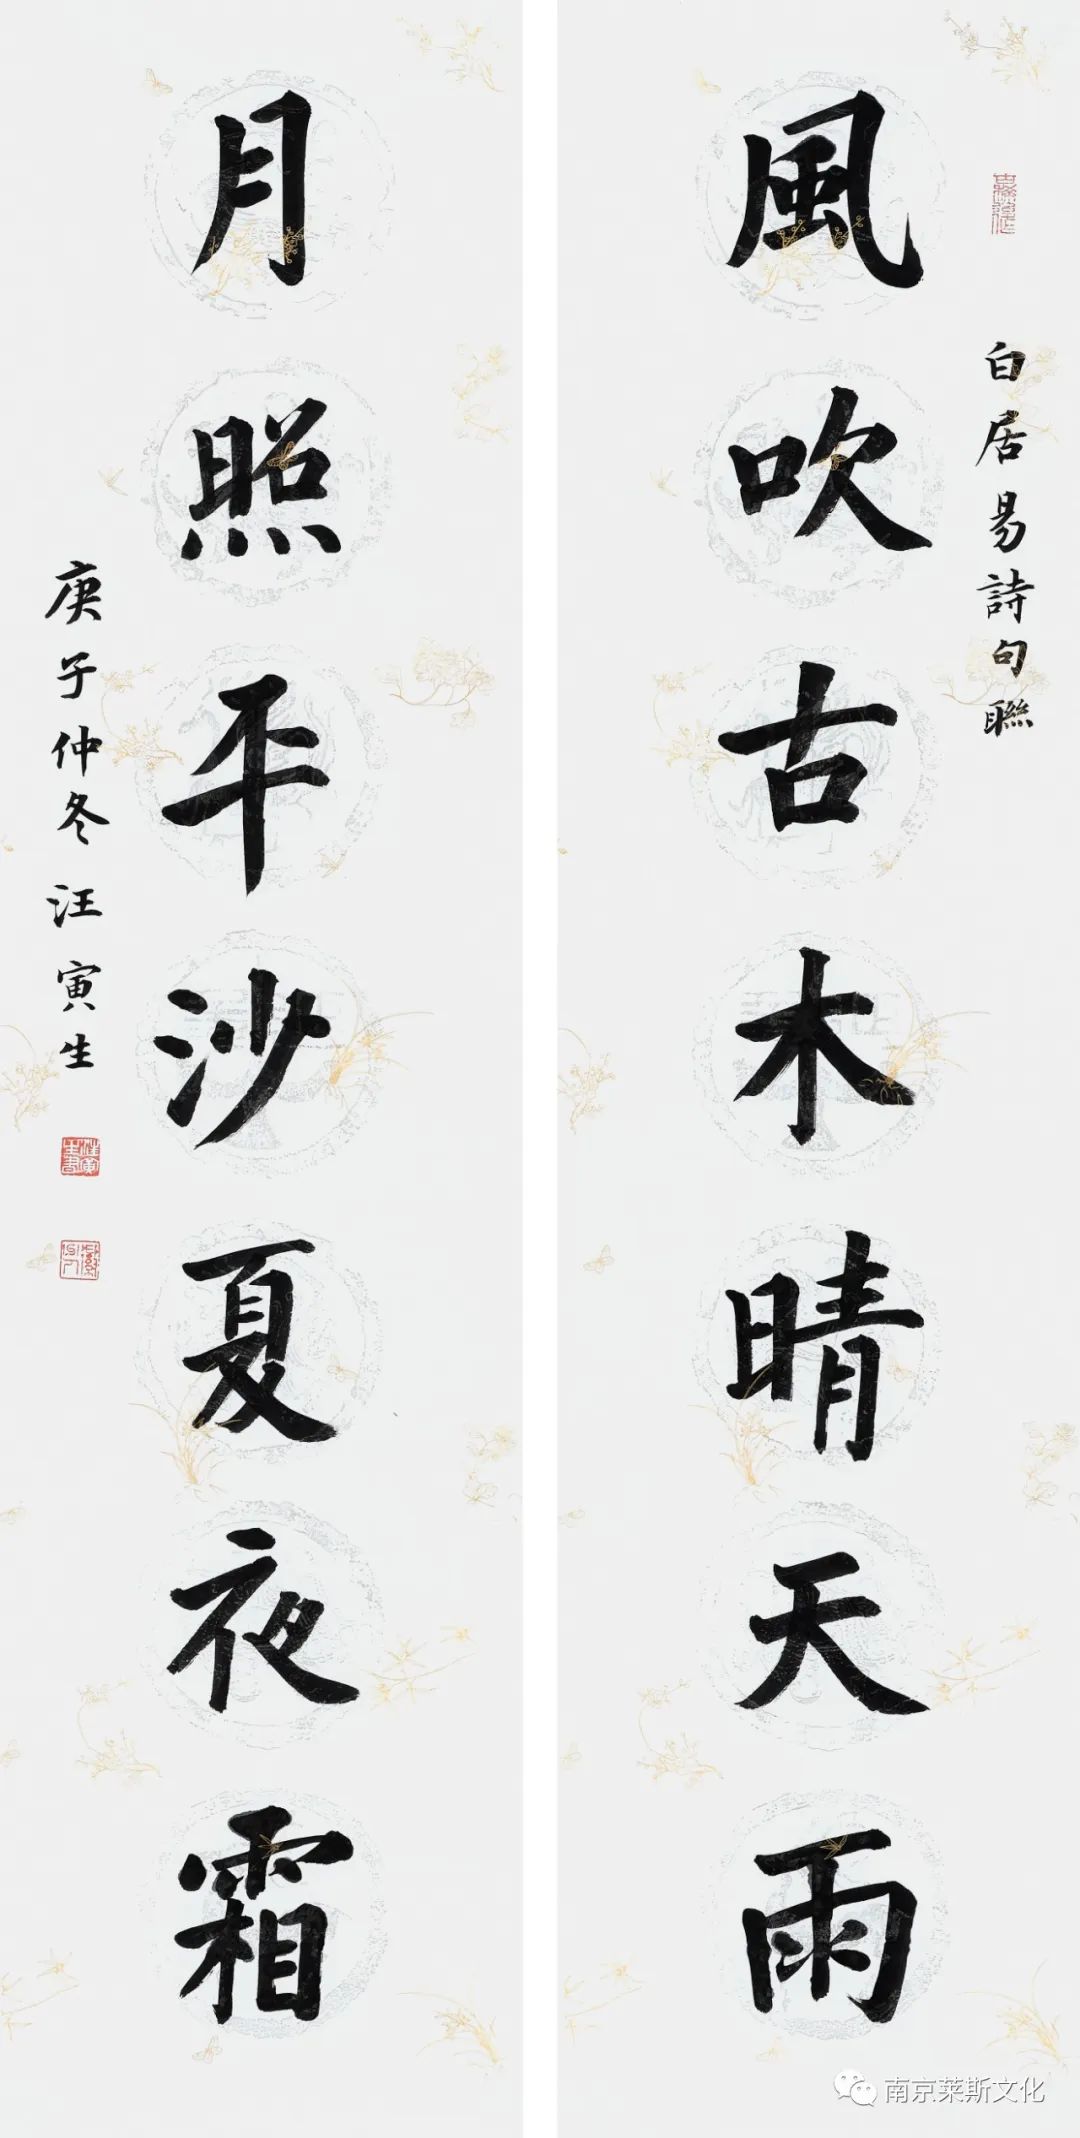 白居易詩句聯
風吹古木晴天雨
月照平沙夏夜霜
庚子仲冬 汪寅生
南京莱斯文化